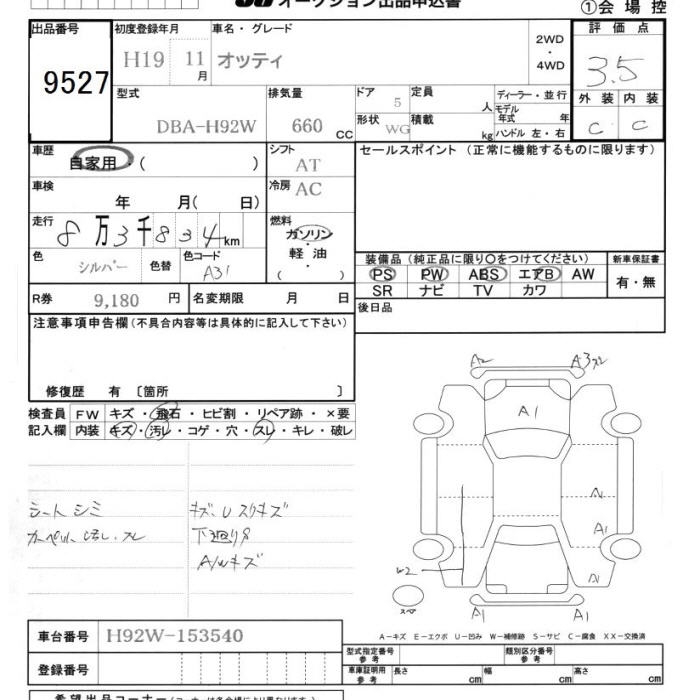 オークション出品申込書
①会場控
出品番号 初度登録年月 車名・グレード 評価点
9527 H19 11月 オッティ 2WD・4WD 3.5
型式 排気量 ドア 定員 ディーラー・並行 外装 内装
DBA-H92W 660 CC 5 人 モデル年式 年 C C
形状 WG 積載 kg ハンドル 左・右
車歴 シフト セールスポイント (正常に機能するものに限ります)
自家用・( ) AT
車検 冷房
年 月( 日) AC
走行 燃料
8万3千834km ガソリン・軽油・( )
色 色替 色コード 装備品(純正品に限り〇をつけてください) 新車保証書
シルバー A31 PS PW ABS エアB AW 有・無
SR ナビ TV カワ
R券 9,180 円 名変期限 月 日 後日品
注意事項申告欄(不具合内容等は具体的に記入して下さい)
修復歴 有 〔箇所 〕
検査員 FW キズ・飛石・ヒビ割・リペア跡・×要
記入欄 内装 キズ・汚レ・コゲ・穴・スレ・キレ・破レ
シートシミ
キズ、Uスリキズ
下廻りS
A/Wキズ
A2 A3スレ
A1
A1
W2
スペア
A1 A1
A-キズ E-エクボ U-凹み W-補修跡 S-サビ C-腐食 XX-交換済
車台番号 H92W-153540
登録番号
型式指定番号 参考 類別区分番号 参考
車庫証明用 参考 長さ cm 幅 cm 高さ cm
希望出品コーナー